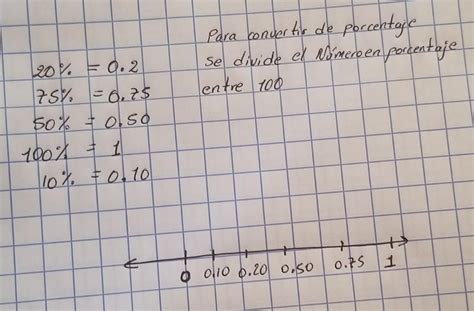 20% = 0.2
75% = 0.75
50% = 0.50
100% = 1
10% = 0.10
Para convertir de porcentaje
se divide el Número en porcentaje
entre 100
0 0.10 0.20 0.50 0.75 1